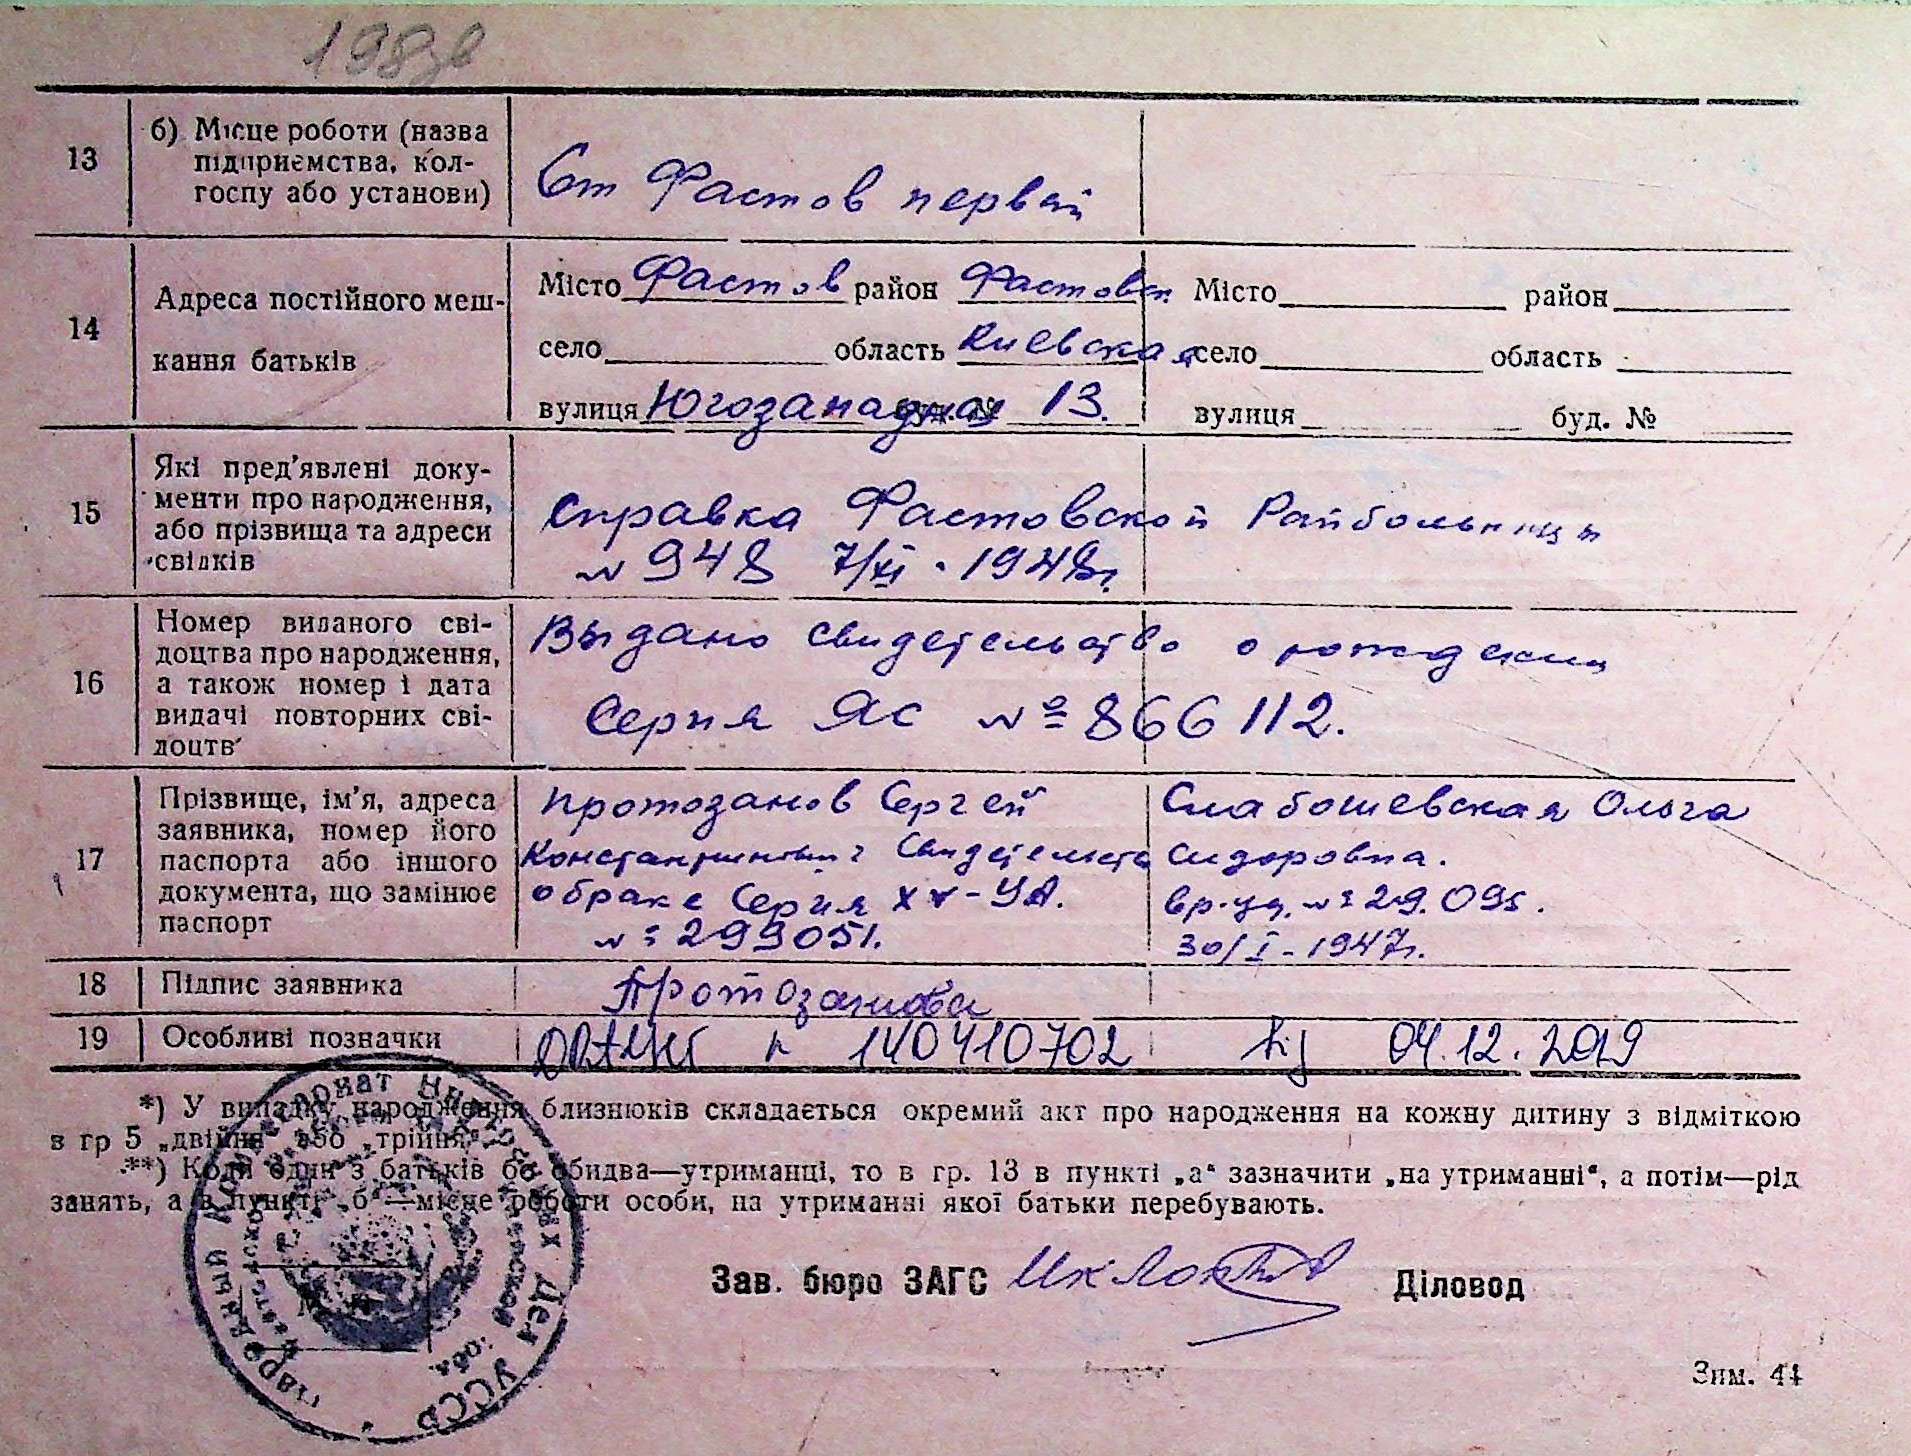 198зв
13
б) Місце роботи (назва
підприємства, кол-
госпу або установи)
Ст Фастов первый
14
Адреса постійного меш-
кання батьків
Місто Фастов район Фастовск
село область Киевская
вулиця Югозападная буд. № 13.
Місто район
село область
вулиця буд. №
15
Які пред'явлені доку-
менти про народження,
або прізвища та адреси
свідків
Справка Фастовской Райбольницы
№ 948 7/XI.1948г.
16
Номер виданого сві-
доцтва про народження,
а також номер і дата
видачі повторних сві-
доцтв
Выдано свидетельство о рождении
Серия ЯС № 866112.
17
Прізвище, ім'я, адреса
заявника, номер його
паспорта або іншого
документа, що замінює
паспорт
Протозанов Сергей
Константинович Свидетельство
о браке Серия XV-УА.
№ 299051.
Слабошевская Ольга
Сидоровна.
вр.уд. № 29.095.
30/I-1947г.
18
Підпис заявника
Протозанова
19
Особливі позначки
ДРАЦСГ 140410702 04.12.2019
*) У випадку народження близнюків складається окремий акт про народження на кожну дитину з відміткою
в гр 5 „двійня" або „трійня".
**) Коли один з батьків бо обидва—утриманці, то в гр. 13 в пункті „а" зазначити „на утриманні", а потім—рід
занять, а в пункті „б"—місце роботи особи, на утриманні якої батьки перебувають.
Народный Комиссариат Внутренних Дел УССР
обл.
Зав. бюро ЗАГС
Діловод
Зим. 44